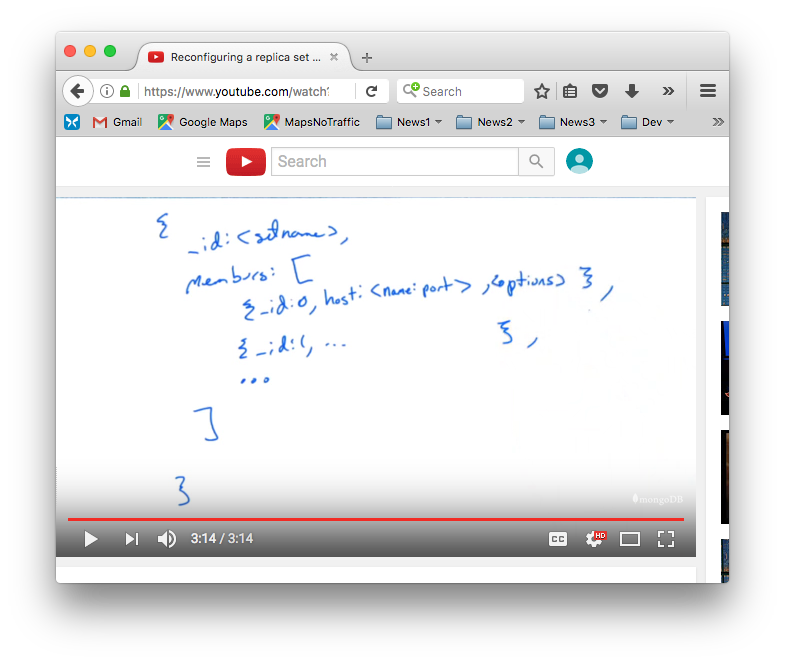 Reconfiguring a replica set ...
https://www.youtube.com/watch?
Search
Gmail
Google Maps
MapsNoTraffic
News1
News2
News3
Dev
Search
{
_id: <setname>,
members: [
{_id:0, host: <name:port> , <options> } ,
{_id:1, ... } ,
...
]
}
mongoDB
3:14 / 3:14
CC
HD